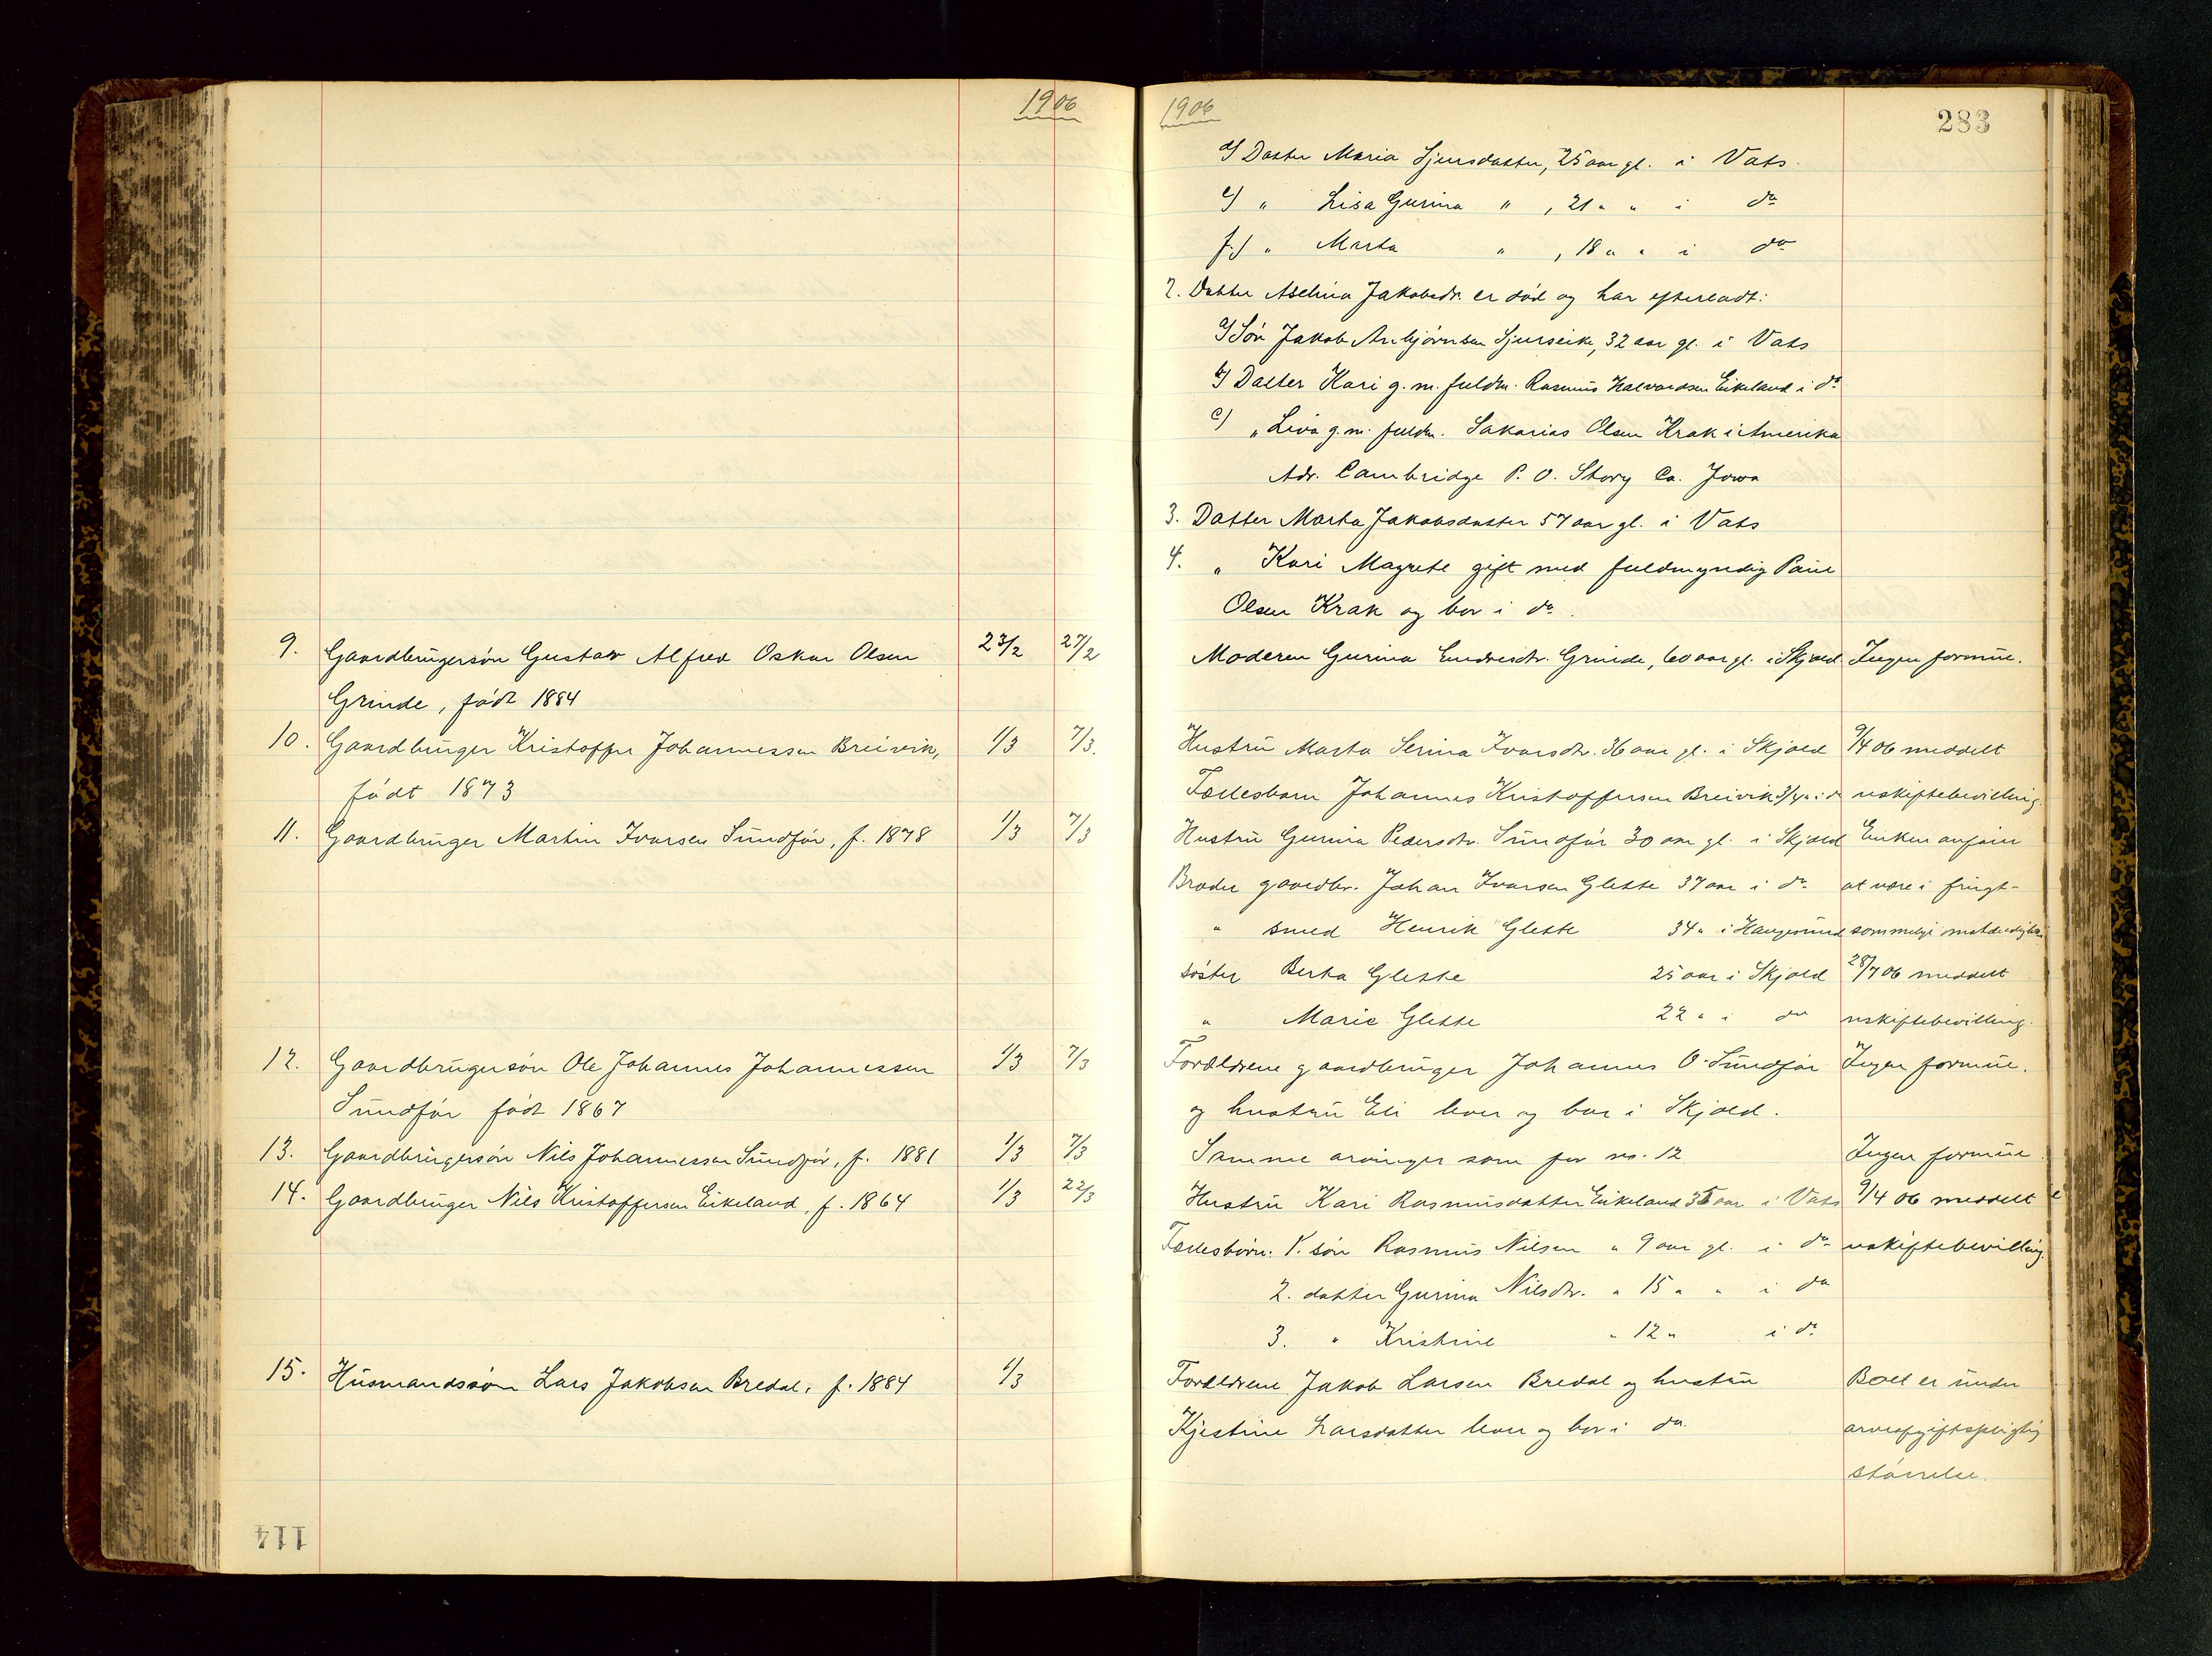 1906
9. Gaardbrugersøn Gustav Alfred Oskar Olsen 23/2 27/2
Grinde, født 1884
10. Gaardbruger Kristoffer Johannessen Breivik, 1/3 7/3.
født 1873
11. Gaardbruger Martin Ivarsen Sundfør, f. 1878 1/3 7/3
12. Gaardbrugersøn Ole Johannes Johannessen 1/3 7/3
Sundfør født 1867
13. Gaardbrugersøn Nils Johannessen Sundfør, f. 1881 1/3 7/3
14. Gaardbruger Nils Kristoffersen Eikeland, f. 1864 1/3 22/3
15. Husmandssøn Lars Jakobsen Bredal, f. 1884 1/3
114
1906
283
d) Datter Maria Sjursdatter, 25 aar gl. i Vats.
e) " Lisa Gurina " , 21 " " i do
f.) " Marta " , 18 " " i do
2. Datter Aselina Jakobsdr. er død og har efterladt:
a) Søn Jakob Anbjørnsen Sjurseike, 32 aar gl. i Vats
b) Datter Kari g. m. fuldm. Rasmus Halvardsen Eikeland i do
c) " Liva g. m. fuldm. Sakarias Olsen Krak i Amerika
Adr. Cambridge P. O. Story Co. Jowa
3. Datter Marta Jakobsdatter 57 aar gl. i Vats
4. " Kari Magrete gift med fuldmyndig Paul
Olsen Krak og bor i do.
Moderen Gurina Endresdtr. Grinde, 60 aar gl. i Skjold Ingen formue.
Hustru Marta Serina Ivarsdtr. 36 aar gl. i Skjold 9/4 06 meddelt
Fællesbarn Johannes Kristoffersen Breivik 3/4 a i do uskiftebevilling.
Hustru Gurina Pedersdtr. Sundfør 30 aar gl. i Skjold Enken
Broder gaardbr. Johan Ivarsen Glette 37 aar i do at være i frugt-
" smed Henrik Glette 34 " i Haugesund sommelige
søster Berta Glette 25 aar i Skjold 28/7 06 meddelt
" Marie Glette 22 " i do uskiftebevilling.
Forældrene gaardbruger Johannes O. Sundfør Ingen formue.
og hustru Eli lever og bor i Skjold.
Samme arvinger som for no. 12 Ingen formue
Hustru Kari Rasmusdatter Eikeland 35 aar i Vats 9/4 06 meddelt
Fællesbørn: 1. søn Rasmus Nilsen " 9 aar gl. i do uskiftebevilling.
2. datter Gurina Nilsdtr. " 15 " " i do
3. " Kristine " 12 " i do
Forældrene Jakob Larsen Bredal og hustru Boet er under
Kjestine Larsdatter lever og bor i do arveafgiftspligtig
størrelse.